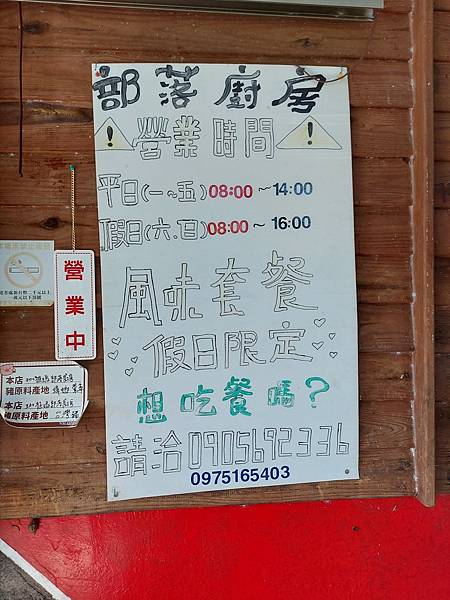 部落廚房
營業時間
平日(一~五)08:00~14:00
假日(六.日)08:00~16:00
風味套餐
假日限定
想吃餐嗎?
請洽0905692336
0975165403
營業中
本店
豬原料產地
本店
豬原料產地 台灣豬